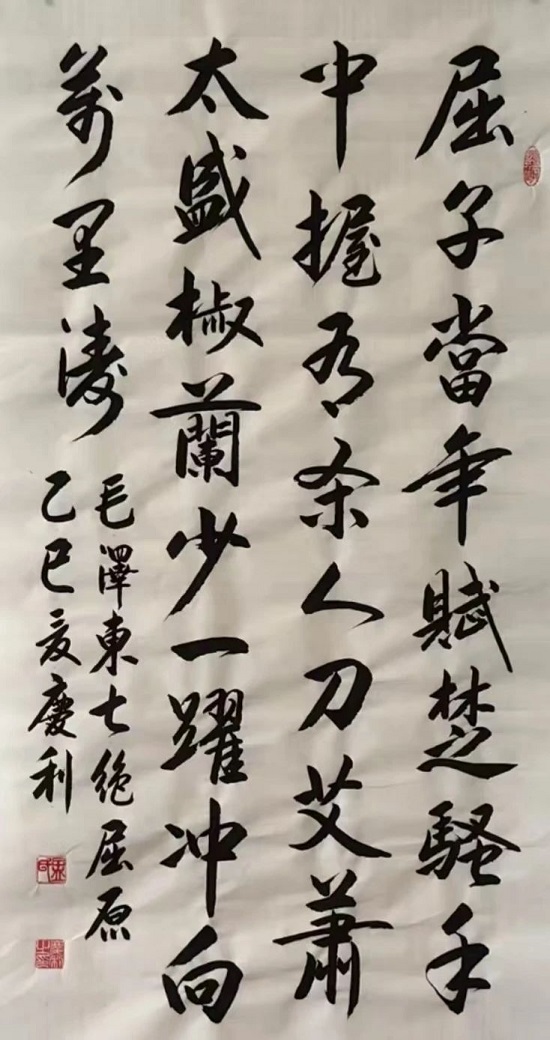 屈子當年賦楚騷手
中握有杀人刀艾蕭
太盛椒蘭少一躍冲向
萬里濤
毛澤東七絶屈原
乙巳夏慶利